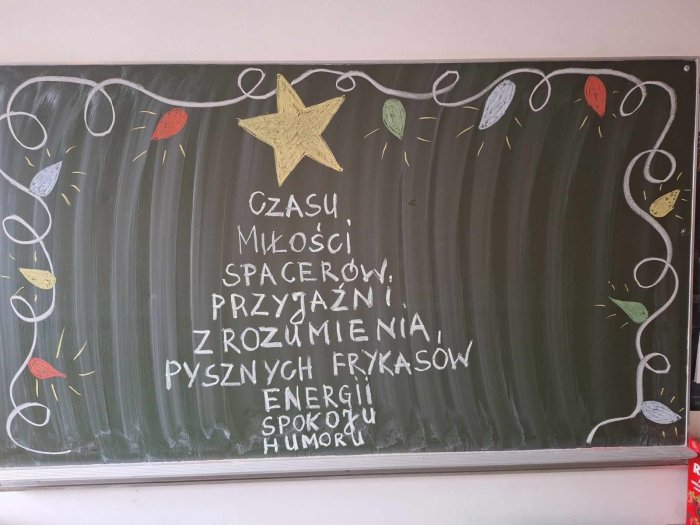 CZASU,
MIŁOŚCI
SPACERÓW,
PRZYJAŹNI,
ZROZUMIENIA,
PYSZNYCH FRYKASÓW
ENERGII
SPOKOJU
HUMORU